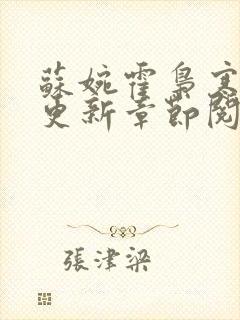 蘇婉霍梟寒
更新章節閱
張津梁